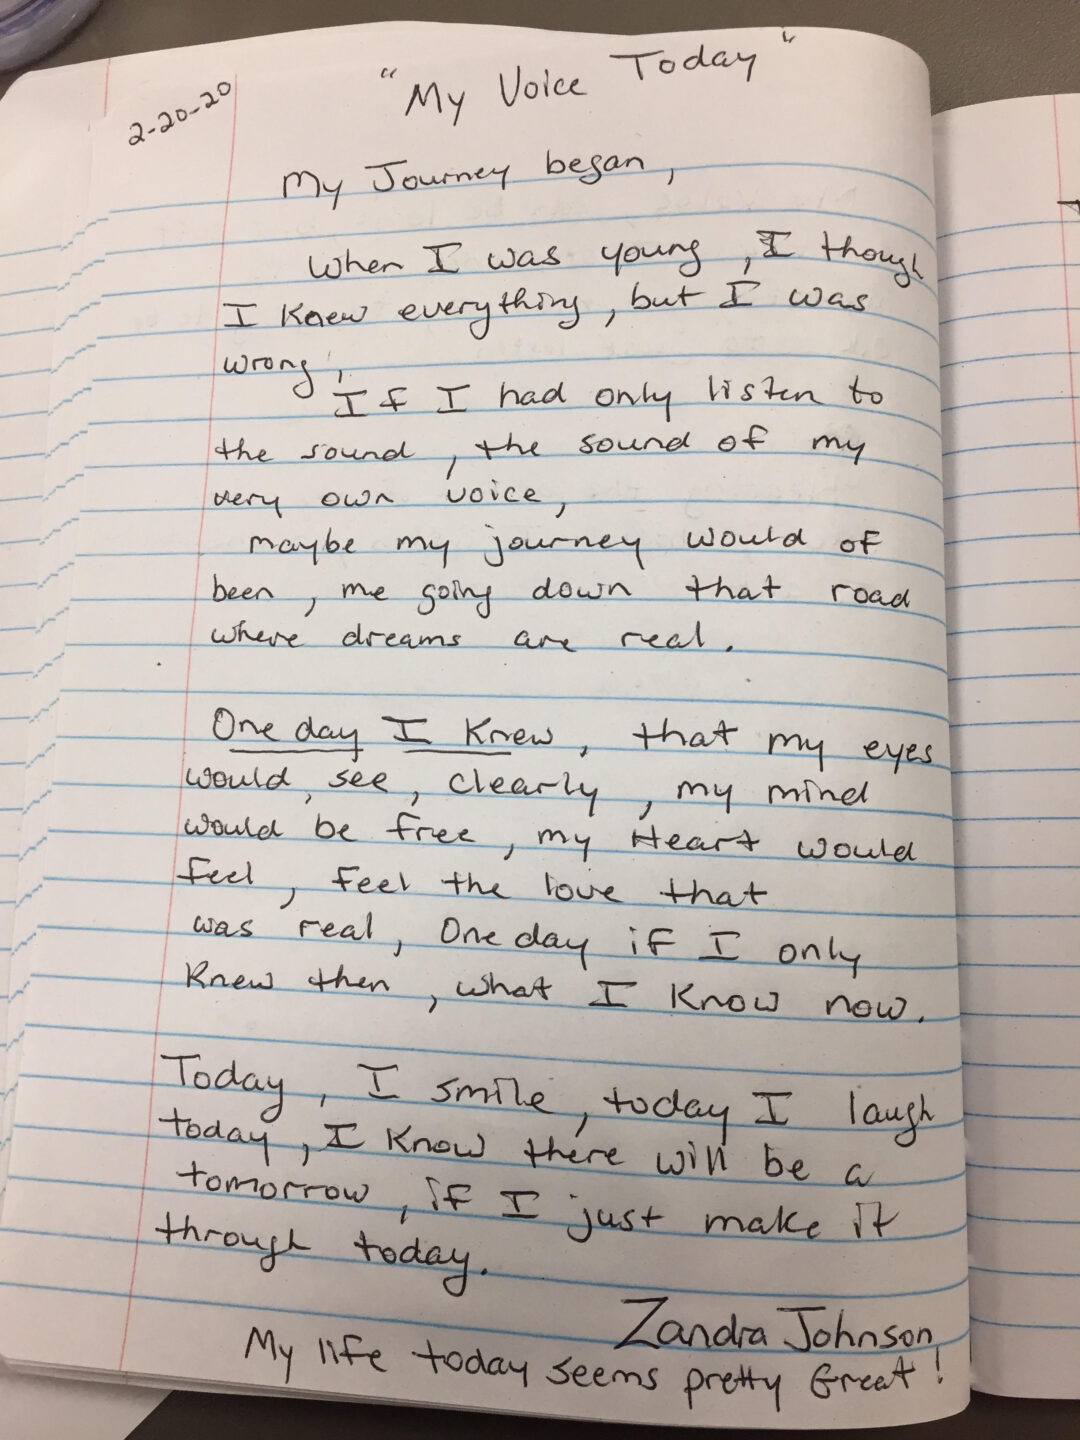 "My Voice Today"
2-20-20
My Journey began,
When I was young, I though
I Knew everything, but I was
wrong,
If I had only listen to
the sound, the sound of my
very own voice,
maybe my journey would of
been, me going down that road
where dreams are real.
One day I Knew, that my eyes
would, see, clearly, my mind
would be free, my Heart would
feel, feel the love that
was real, One day if I only
Knew then, what I Know now.
Today, I smile, today I laugh
today, I Know there will be a
tomorrow, if I just make it
through today.
Zandra Johnson
My life today seems pretty Great!